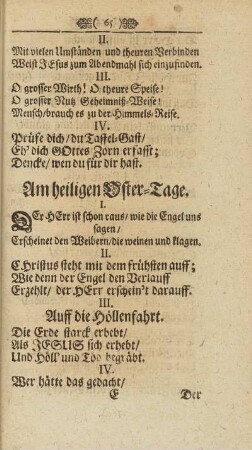 65
II.
Mit vielen Umständen und theuren Verbinden
Weist JEsus zum Abendmahl sich einzufinden.
III.
O grosser Wirth! O theure Speise!
O grosser Nutz Geheimniß-Weise!
Mensch/ brauch es zu der-Himmels-Reise.
IV.
Prüfe dich/ du Taffel-Gast/
Eh' dich GOttes Zorn erfasst;
Dencke/ wen du für dir hast.
Am heiligen Oster-Tage.
I.
DEr HErr ist schon raus/ wie die Engel uns
sagen/
Erscheinet den Weibern/ die weinen und klagen.
II.
CHristus steht mit dem frühsten auff;
Wie denn der Engel den Verlauff
Erzehlt/ der HErr erschein't darauff.
III.
Auff die Höllenfahrt.
Die Erde starck erbebt/
Als JESUS sich erhebt/
Und Höll' und Tod begräbt.
IV.
Wer hätte das gedacht/
E Der